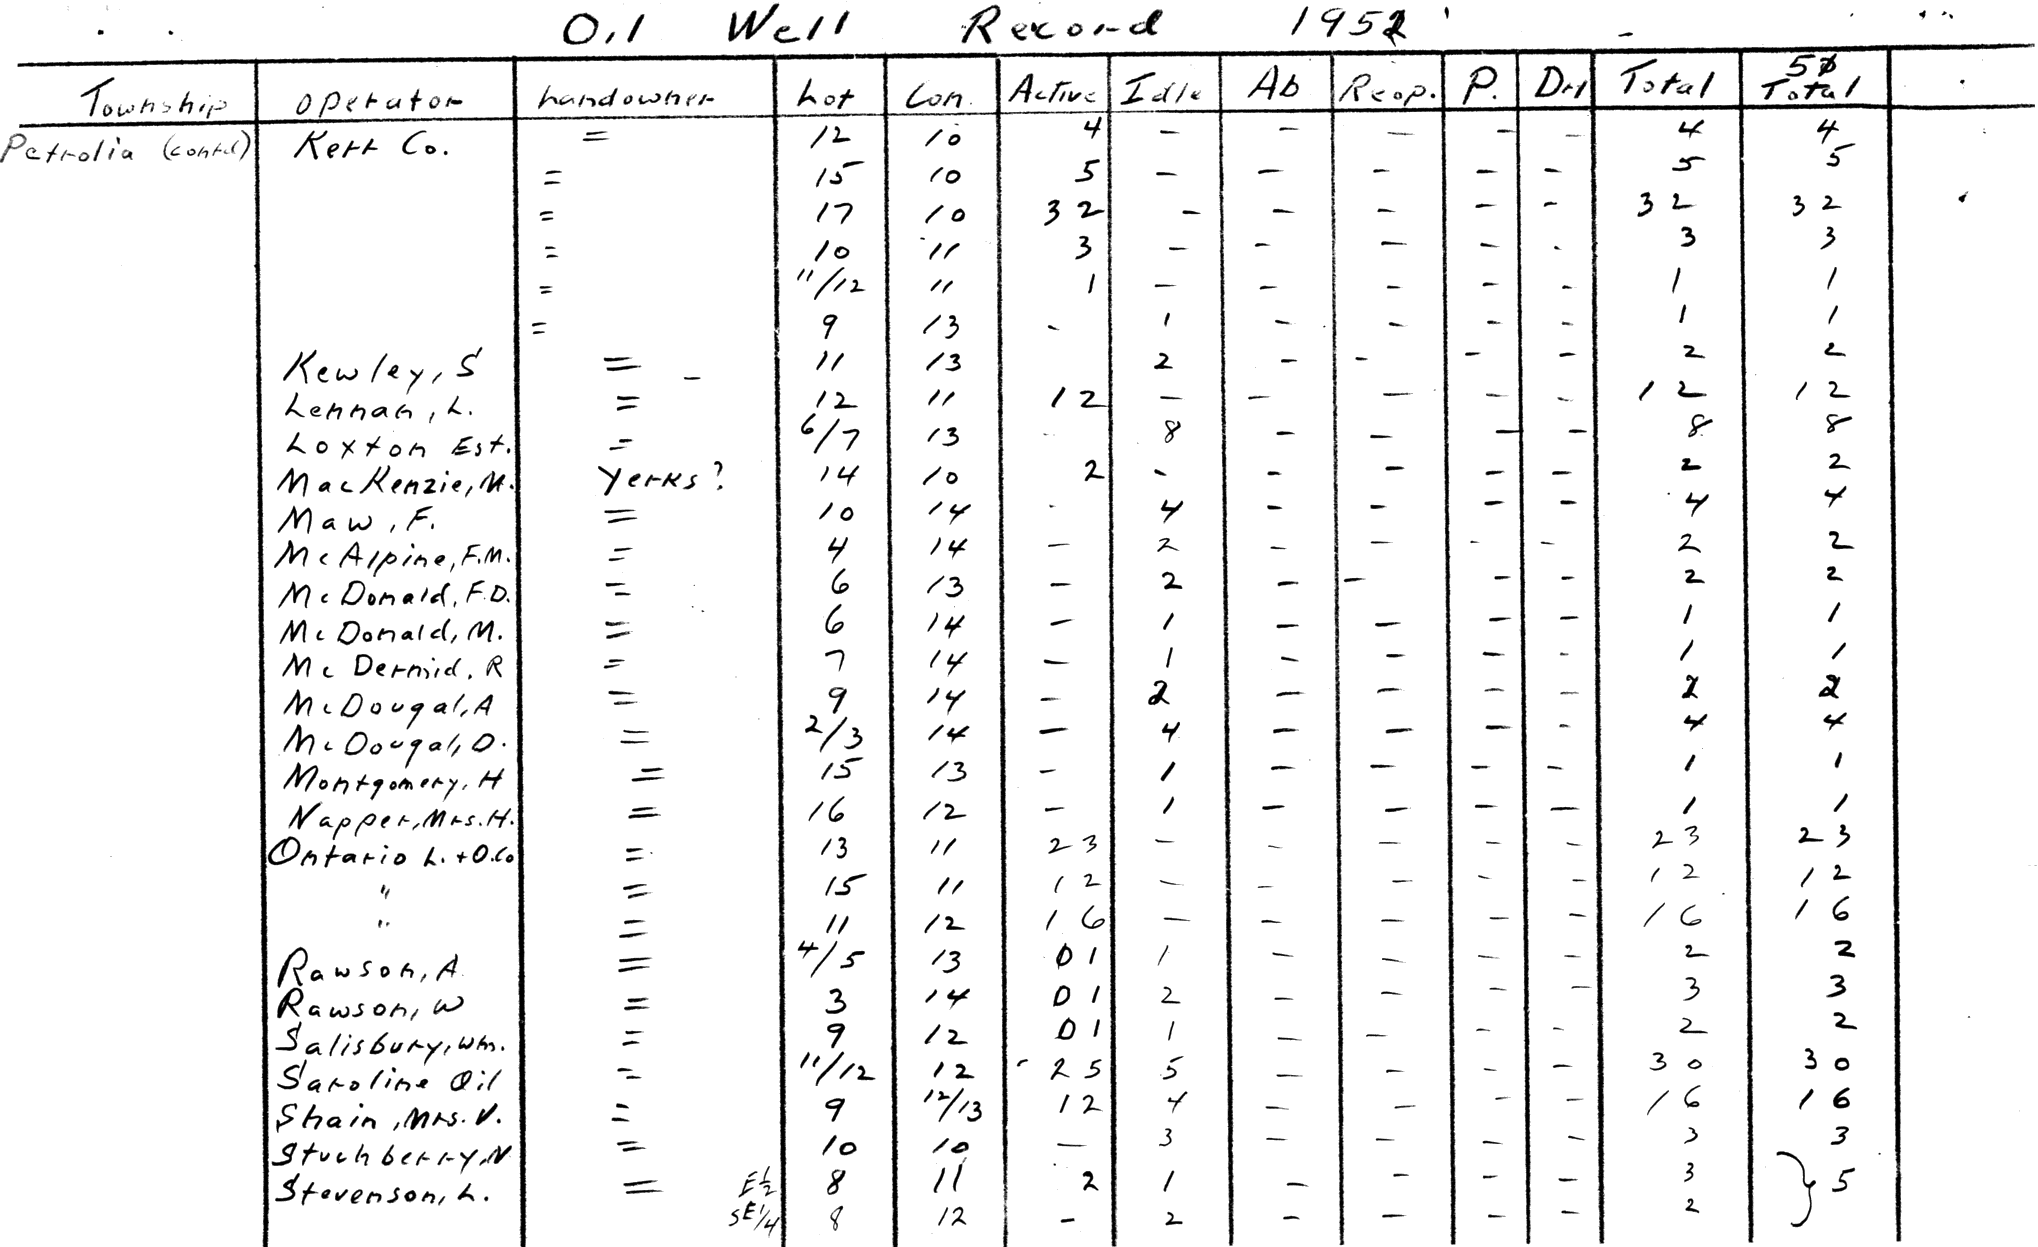 Oil Well Record 1952
Township Operator Landowner Lot Con. Active Idle Ab Reop. P. Drl Total 50 Total
Petrolia (contd) Kerr Co. = 12 10 4 - - - - - 4 4
= 15 10 5 - - - - - 5 5
= 17 10 32 - - - - - 32 32
= 10 11 3 - - - - - 3 3
= 11/12 11 1 - - - - - 1 1
= 9 13 - 1 - - - - 1 1
Kewley, S = - 11 13 2 - - - - 2 2
Lennan, L. = 12 11 12 - - - - - 12 12
Loxton Est. = 6/7 13 - 8 - - - - 8 8
MacKenzie, M. Yerks? 14 10 2 - - - - - 2 2
Maw, F. = 10 14 - 4 - - - - 4 4
McAlpine, F.M. = 4 14 - 2 - - - - 2 2
McDonald, F.D. = 6 13 - 2 - - - - 2 2
McDonald, M. = 6 14 - 1 - - - - 1 1
McDermid, R = 7 14 - 1 - - - - 1 1
McDougal, A = 9 14 - 2 - - - - 2 2
McDougal, D. = 2/3 14 - 4 - - - - 4 4
Montgomery, H = 15 13 - 1 - - - - 1 1
Napper, Mrs. H. = 16 12 - 1 - - - - 1 1
Ontario L. + O. Co = 13 11 23 - - - - - 23 23
" = 15 11 12 - - - - - 12 12
" = 11 12 16 - - - - - 16 16
Rawson, A. = 4/5 13 01 1 - - - - 2 2
Rawson, W = 3 14 01 2 - - - - 3 3
Salisbury, Wm. = 9 12 01 1 - - - - 2 2
Saroline Oil = 11/12 12 25 5 - - - - 30 30
Shain, Mrs. V. = 9 12/13 12 4 - - - - 16 16
Stuchberry, N = 10 10 - 3 - - - - 3 3
Stevenson, L. = E½ 8 11 2 1 - - - - 3 } 5
SE1/4 8 12 - 2 - - - - 2